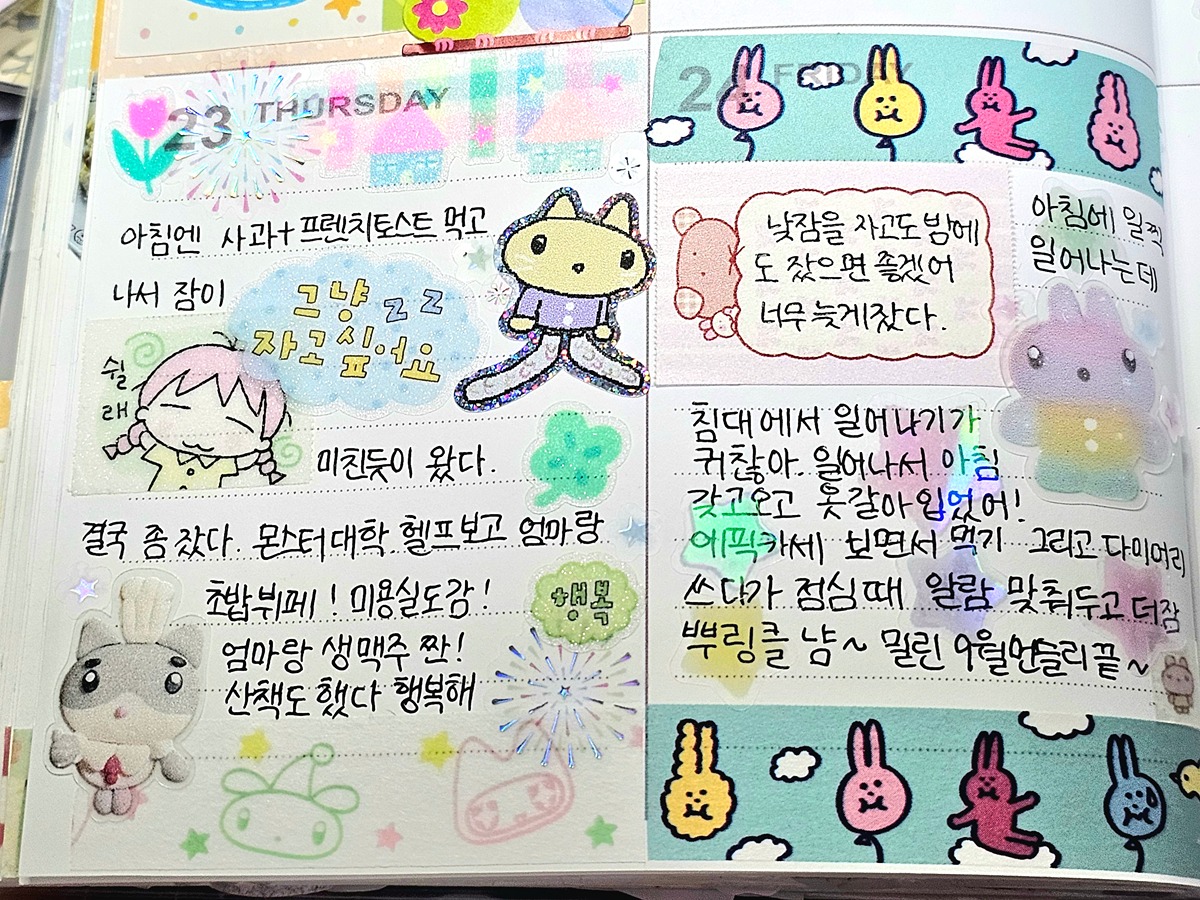 23 THURSDAY
아침엔 사과+프렌치토스트 먹고
나서 잠이
그냥 z z
자고싶어요
쉴
래
미친듯이 왔다.
결국 좀 잤다. 몬스터대학 헬프보고 엄마랑
초밥뷔페! 미용실도감!
행복
엄마랑 생맥주 짠!
산책도 했다 행복해
24 FRIDAY
낮잠을 자고도 밤에
도 잤으면 좋겠어
너무 늦게잤다.
아침에 일찍
일어나는데
침대에서 일어나기가
귀찮아 일어나서 아침
갖고오고 옷갈아입었어!
에픽카세 보면서 먹기 그리고 다이어리
쓰다가 점심때 알람 맞춰두고 더잠
뿌링클 냠~ 밀린 9월먼슬리끝~